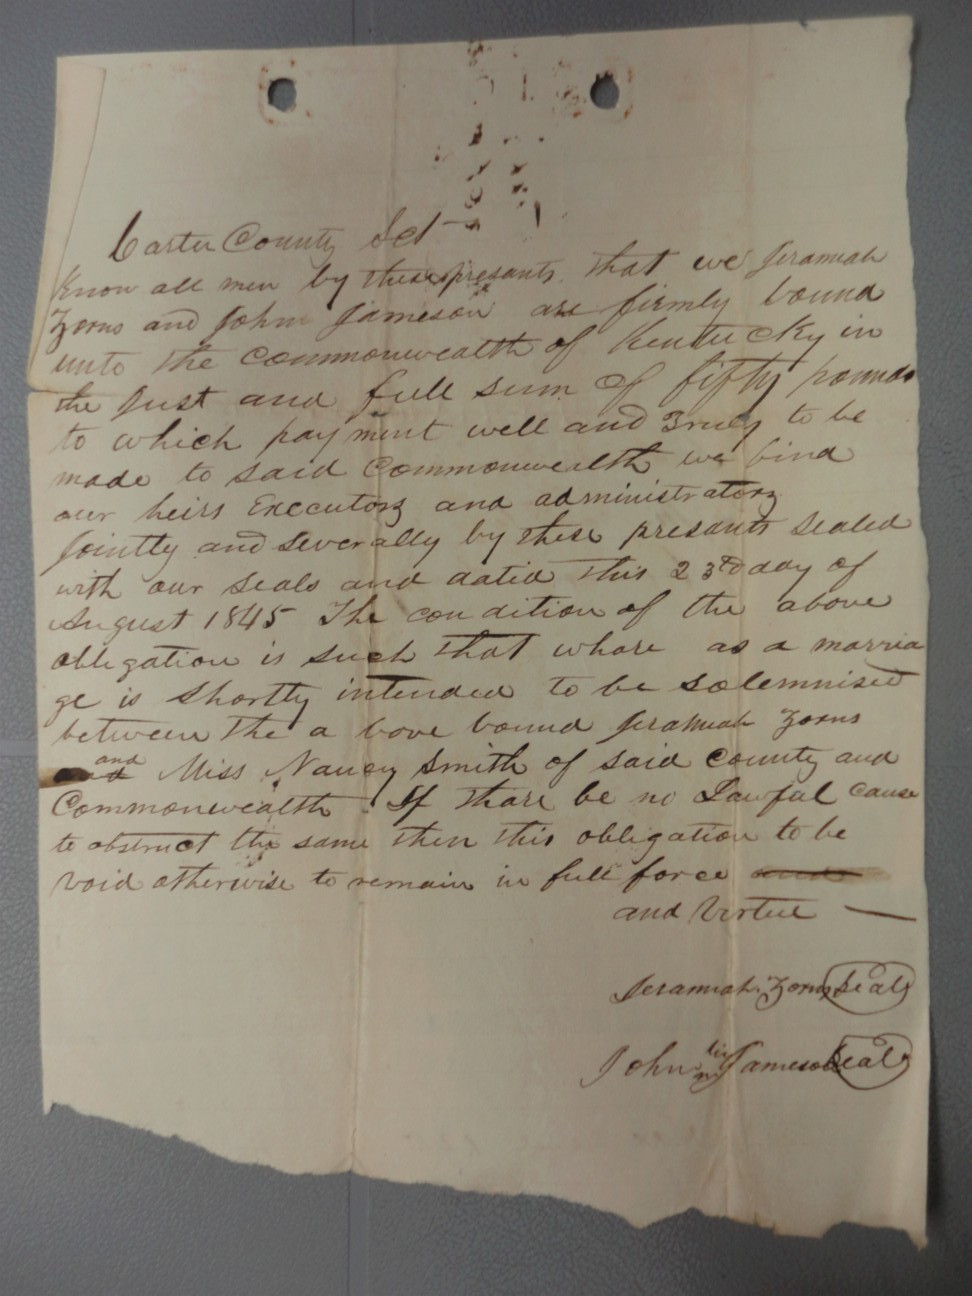 Carter County Sct
Know all men by these presants that we Jeramiah
Zorns and John Jameson are firmly bound
unto the Commonwealth of Kentucky in
the Just and full sum of fifty pounds
to which payment well and Truly to be
made to said Commonwealth we bind
our heirs Executors and administrators
Jointly and severally by these presants Sealed
with our seals and datid this 23rd day of
August 1845 The condition of the above
obligation is such that whare as a marria
ge is shortly intended to be solemnised
between the a bove bound Jeramiah Zorns
and Miss Nancy Smith of said County and
Commonwealth If thare be no Lawful cause
to obstruct the same then this obligation to be
void otherwise to remain in full force and
and Virtue
Jeramiah Zorns Seal
John Jameson Seal